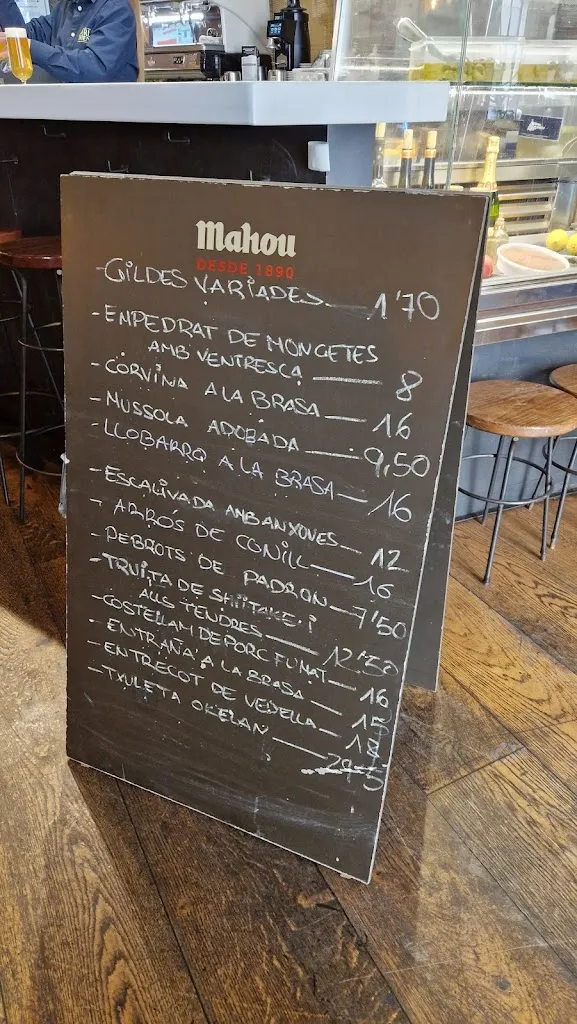 mahou
DESDE 1890
-GILDES VARIADES — 1'70
-EMPEDRAT DE MONGETES
AMB VENTRESCA — 8
-CORVINA A LA BRASA — 16
-MUSSOLA ADOBADA — 9,50
-LLOBARRO A LA BRASA — 16
-ESCALIVADA AMB ANXOVES — 12
-ARRÓS DE CONILL — 16
-PEBROTS DE PADRON — 7'50
-TRUITA DE SHIITAKE I
ALLS TENDRES — 12'50
-COSTELLAM DE PORC FUMAT — 16
-ENTRAÑA A LA BRASA — 15
-ENTRECOT DE VEDELLA — 18
-TXULETA OKELAN —